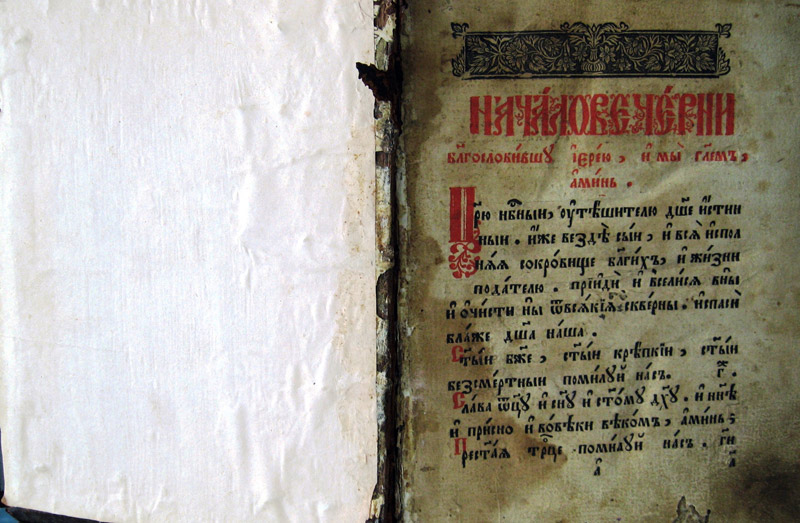 НАЧА́ЛОВЕЧЕ́РНИ
Бл҃гослови́вшꙋ і҆ере́ю, и҆ мы̀ гл҃емъ,
а҆ми́нь.
Цр҃ю нбⷭ҇ныи, ᲂу҆тѣ́шителю дш҃е и҆́стин
ныи. и҆́же бездѣ̀ сы́и, и҆ всѧ̀ и҆спол
нѧ́ѧ сокро́вище бл҃ги́хъ, и҆ жи́зни
пода́телю. прїидѝ и҆ всели́сѧ вны̀
и҆ ѡ҆чи́сти ны̀ ѿвсѧ́кїѧ скве́рны. и҆ спасѝ
бла́же дш҃а на́ша.
Ст҃ы́и бж҃е, ст҃ы́и крѣ́пкїи, ст҃ы́и
безсме́ртныи поми́лꙋи на́съ. г҃.
Сла́ва ѿц҃ꙋ̀ и҆ сн҃ꙋ и҆ ст҃о́мꙋ дх҃ꙋ. и҆ нн҃ѣ
и҆ при́сно и҆ вовѣ́ки вѣко́мъ, а҆ми́нь
Прест҃а́ѧ трⷪ҇це поми́лꙋи на́съ. гн҃
а҃